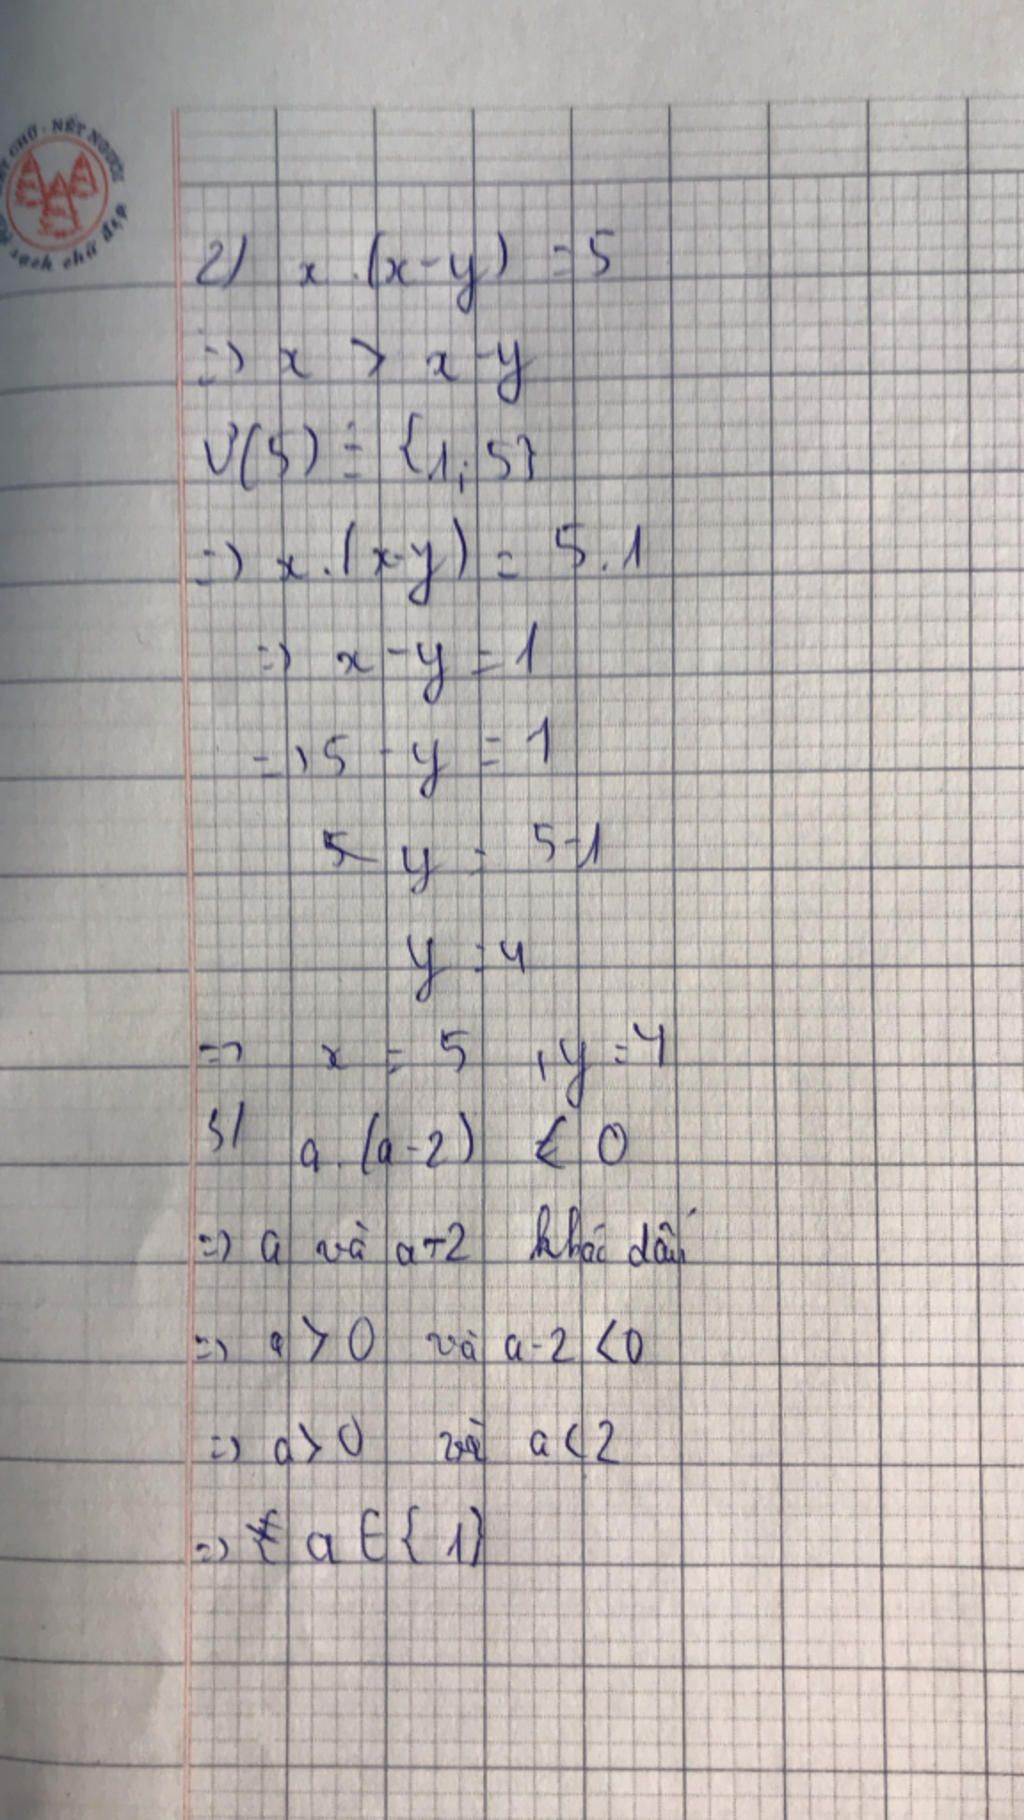 NÉT CHỮ - NẾT NGƯỜI
sạch chữ đẹp
2) x.(x-y) = 5
=> x > x-y
Ư(5) = {1; 5}
=> x.(x-y) = 5.1
=> x-y = 1
=> 5-y = 1
y = 5-1
y = 4
=> x = 5, y = 4
3) a.(a-2) < 0
=> a và a-2 khác dấu
=> a > 0 và a-2 < 0
=> a > 0 và a < 2
=> a ∈ {1}